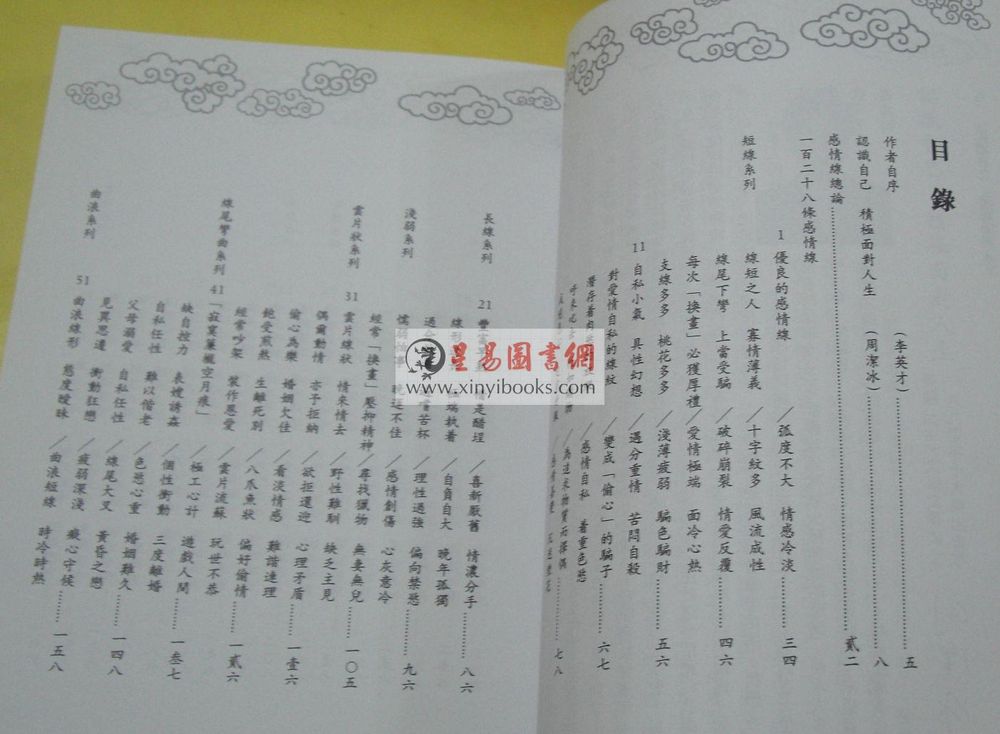 目錄
作者自序（李英才）……五
認識自己 積極面對人生（周潔冰）……八
感情線總論……貳二
一百二十八條感情線
短線系列
1 優良的感情線／弧度不大 情感冷淡……三四
線短之人 寡情薄義／十字紋多 風流成性
線尾下彎 上當受騙／破碎崩裂 情愛反覆……四六
每次「換畫」必獲厚禮／愛情極端 面冷心熱
支線多多 桃花多多／淺薄疲弱 騙色騙財……五六
11 自私小氣 具性幻想／過分重情 苦悶自殺
對愛情自私的線紋／變成「偷心」的騙子……六七
感情自私 着重色慾
為追求物質而擇偶……七八
長線系列
21
情是醋埕／喜新厭舊 情濃分手……八六
端執着／自負自大 晚年孤獨
淺弱系列
嘗苦杯／理性過強 偏向禁慾……九六
不住／感情創傷 心灰意冷
雲片狀系列
經常「換畫」壓抑精神／尋找獵物 無妻無兒……一〇五
31 雲片線狀 情來情去／野性難馴 缺乏主見
偶爾動情 亦予拒納／欲拒還迎 心理矛盾……一壹六
偷心為樂 婚姻欠佳／看淡情感 難諧連理
飽受煎熬 生離死別／八爪魚狀 偏好偷情……一貳六
經常吵架 裝作恩愛／雲片流蘇 玩世不恭
線尾彎曲系列
41「寂寞簾櫳空月痕」／極工心計 遊戲人間……一叁七
缺自控力 表嫂請姦／個性衝動 三度離婚
自私任性 難以偕老／色慾心重 婚姻難久……一四八
父母溺愛 自私任性／線尾大叉 黃昏之戀
見異思遷 衝動狂戀／疲弱深淺 癡心守候……一五八
曲浪系列
51 曲浪線形 態度曖昧／曲浪短線 時冷時熱
星易圖書網
www.xinyibooks.com